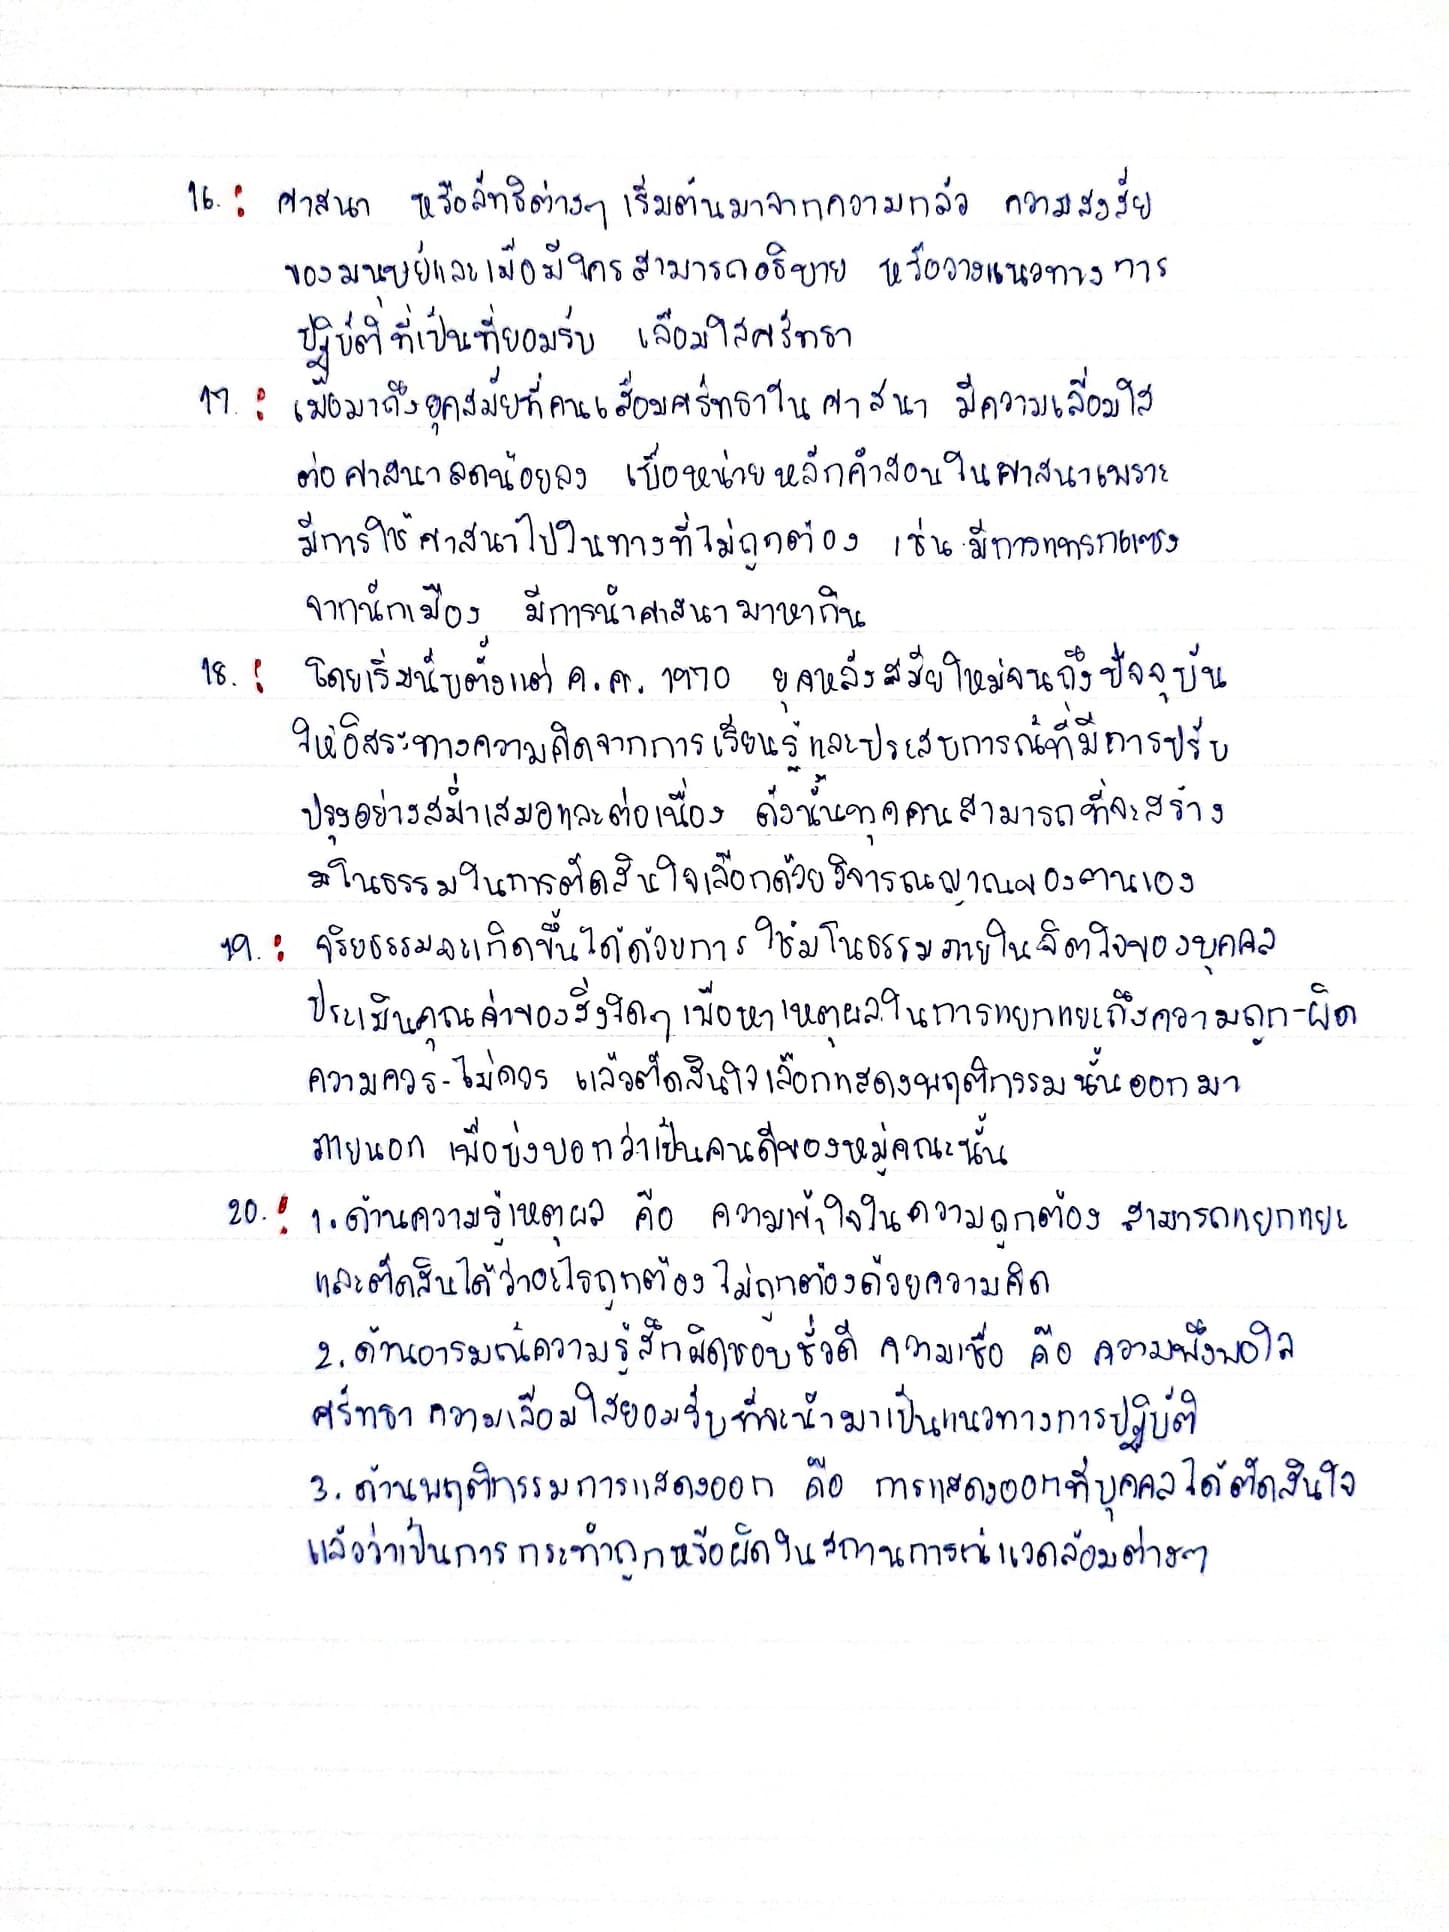 16. : ศาสนา หรือลัทธิต่างๆ เริ่มต้นมาจากความกลัว ความสงสัย
ของมนุษย์และเมื่อมีใครสามารถอธิบาย หรือวางแนวทางการ
ปฏิบัติที่เป็นที่ยอมรับ เลื่อมใสศรัทธา
17. : เมื่อมาถึงยุคสมัยที่คนเสื่อมศรัทธาในศาสนา มีความเลื่อมใส
ต่อศาสนาลดน้อยลง เบื่อหน่ายหลักคำสอนในศาสนาเพราะ
มีการใช้ศาสนาไปในทางที่ไม่ถูกต้อง เช่น มีการแทรกแซง
จากนักเมือง มีการนำศาสนามาหากิน
18. : โดยเริ่มนับตั้งแต่ ค.ศ. 1970 ยุคหลังสมัยใหม่จนถึงปัจจุบัน
ให้อิสระทางความคิดจากการเรียนรู้และประสบการณ์ที่มีการปรับ
ปรุงอย่างสม่ำเสมอและต่อเนื่อง ดังนั้นทุกคนสามารถที่จะสร้าง
มโนธรรมในการตัดสินใจเลือกด้วยวิจารณญาณของตนเอง
19. : จริยธรรมจะเกิดขึ้นได้ด้วยการใช้มโนธรรมภายในจิตใจของบุคคล
ประเมินคุณค่าของสิ่งใดๆ เพื่อหาเหตุผลในการแยกแยะถึงความถูก-ผิด
ความควร-ไม่ควร แล้วตัดสินใจเลือกแสดงพฤติกรรมนั้นออกมา
ภายนอก เพื่อบ่งบอกว่าเป็นคนดีของหมู่คณะนั้น
20. : 1. ด้านความรู้เหตุผล คือ ความเข้าใจในความถูกต้อง สามารถแยกแยะ
และตัดสินได้ว่าอะไรถูกต้อง ไม่ถูกต้องด้วยความคิด
2. ด้านอารมณ์ความรู้สึกผิดชอบชั่วดี ความเชื่อ คือ ความพึงพอใจ
ศรัทธา ความเลื่อมใสยอมรับที่จะนำมาเป็นแนวทางการปฏิบัติ
3. ด้านพฤติกรรมการแสดงออก คือ การแสดงออกที่บุคคลได้ตัดสินใจ
แล้วว่าเป็นการกระทำถูกหรือผิดในสถานการณ์แวดล้อมต่างๆ